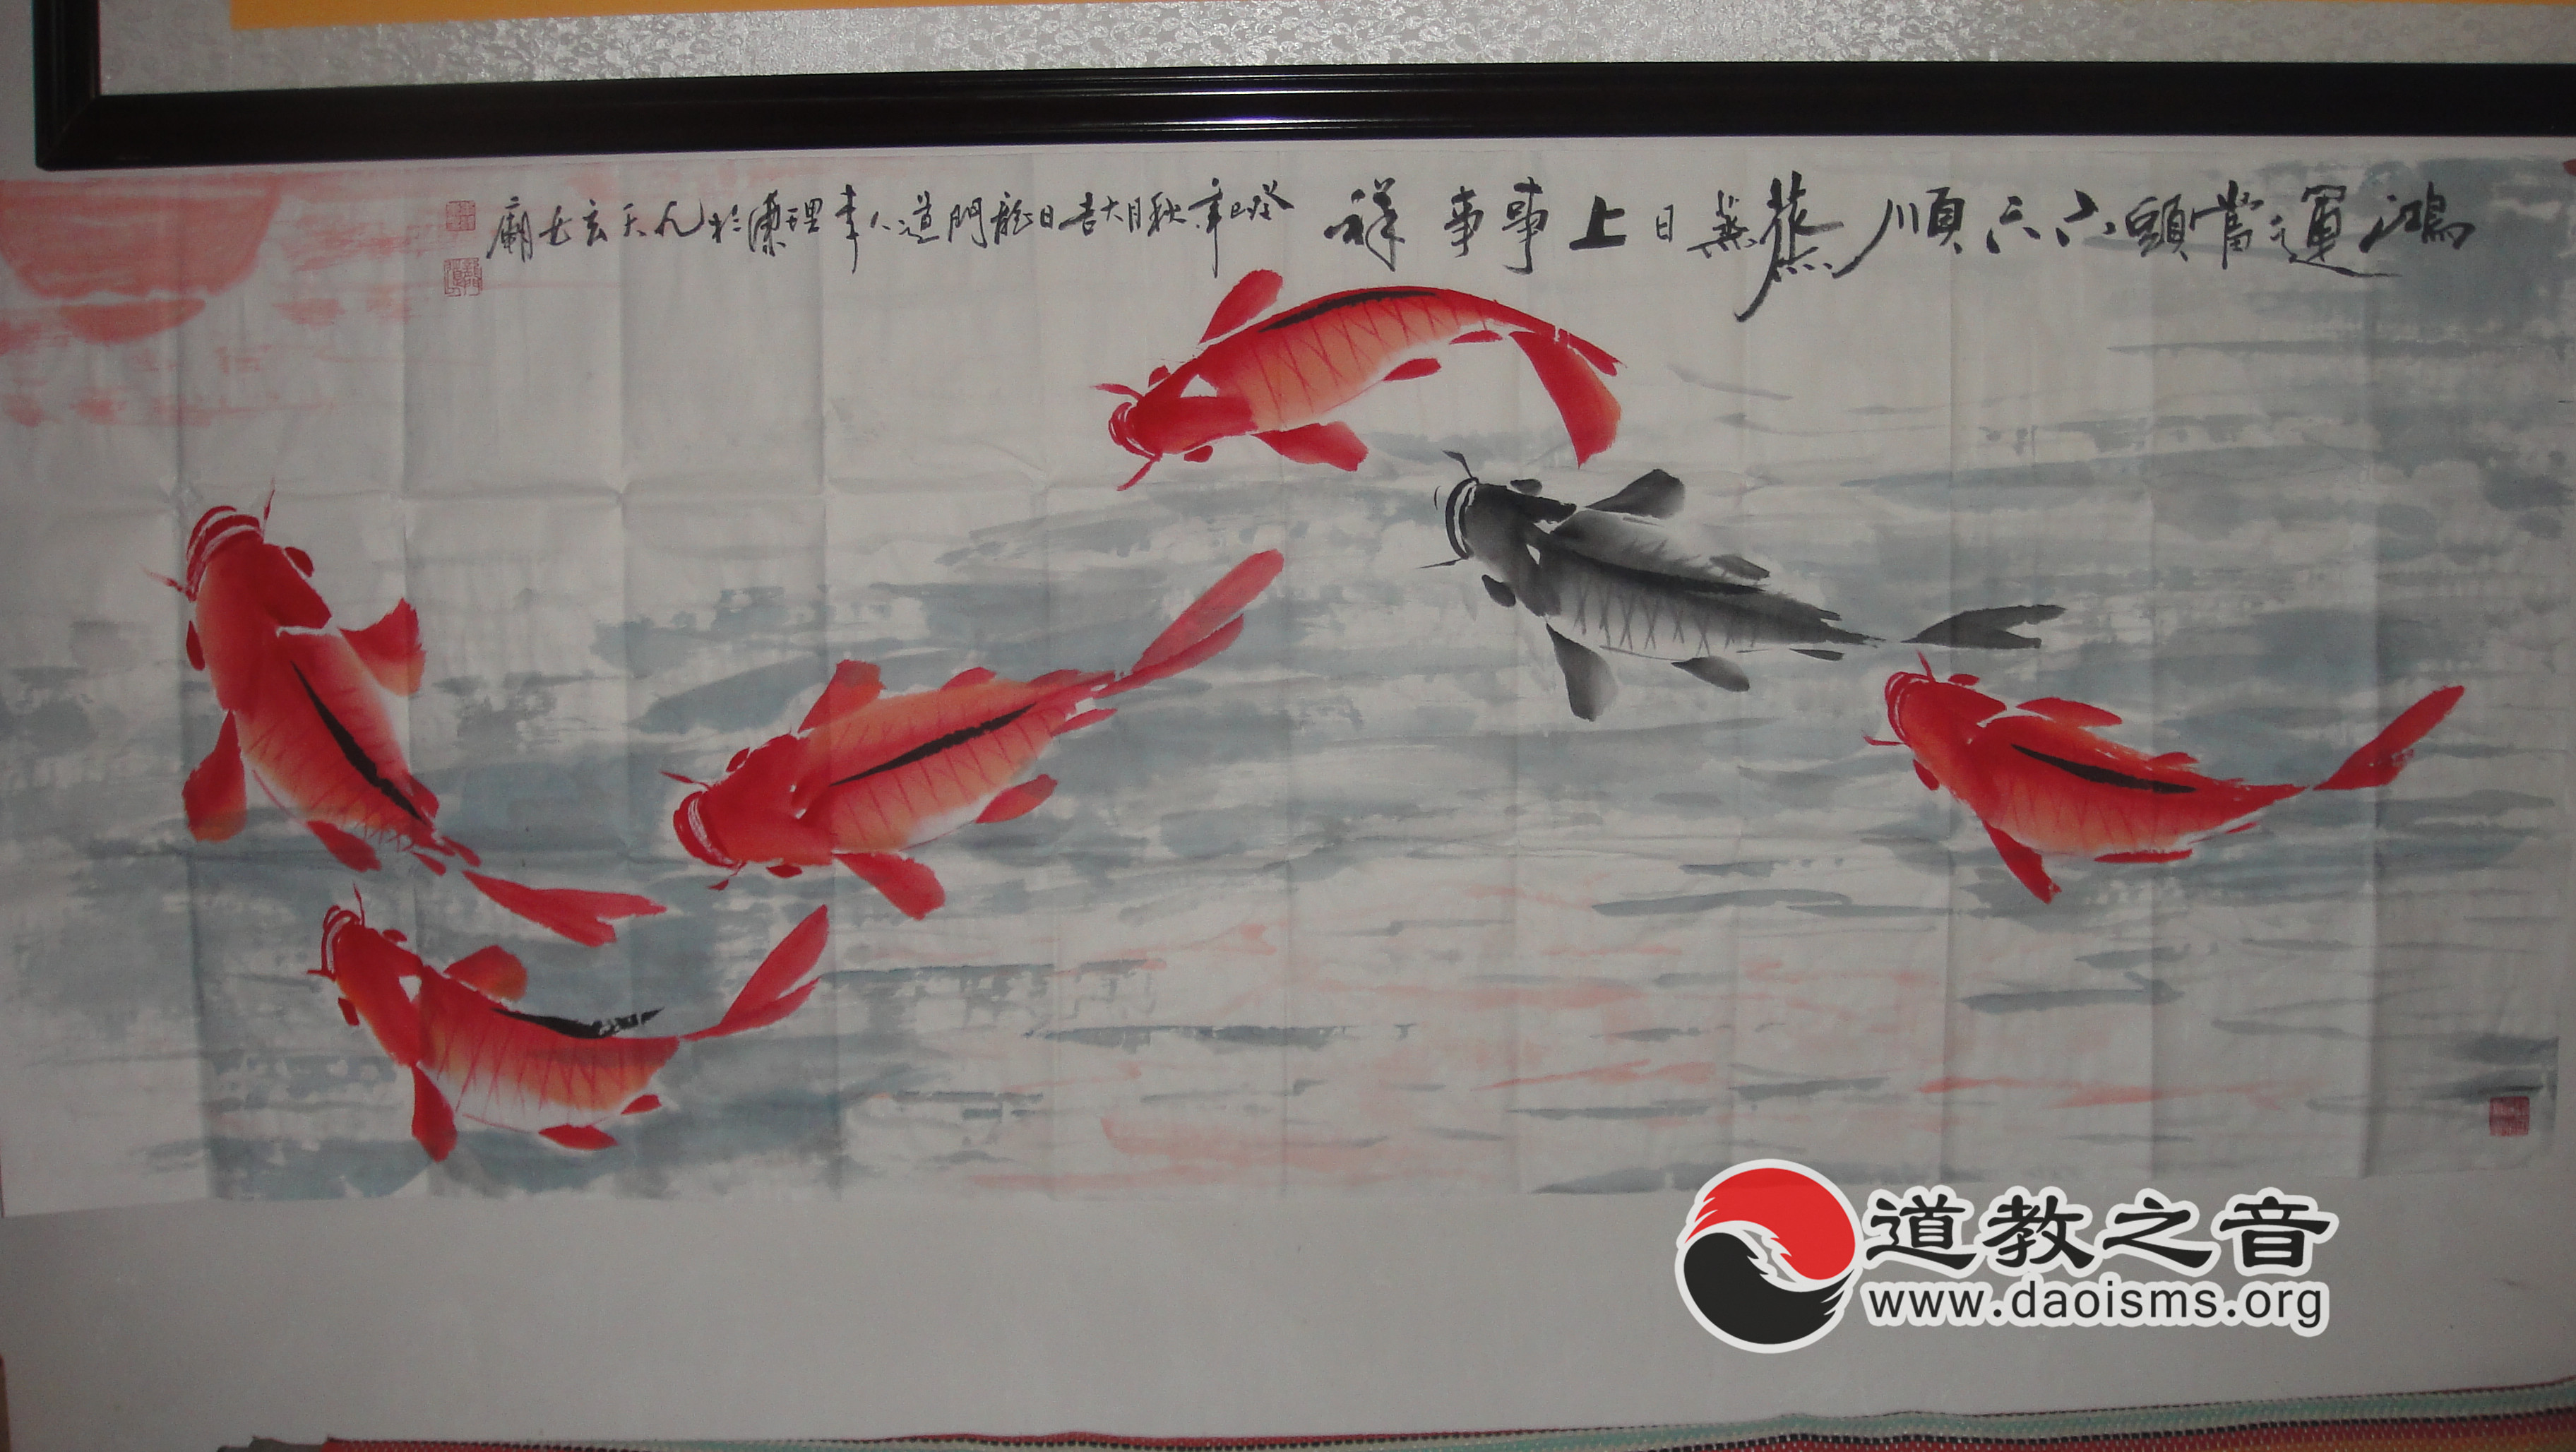 鴻運當頭六六順 蒸蒸日上事事祥
癸巳年秋月大吉日龍門道人李理濂於九天玄女廟
道教之音
www.daoisms.org